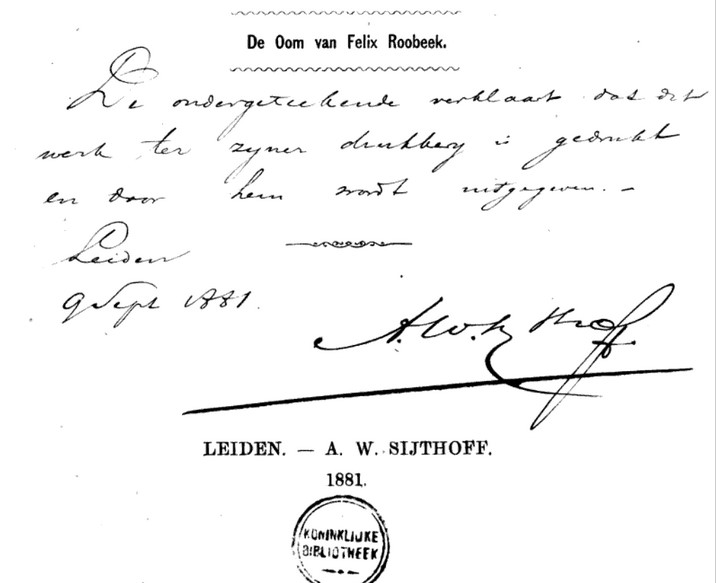 De Oom van Felix Roobeek.
De ondergeteekende verklaart dat dit
werk ter zyner drukkery is gedrukt
en door hem wordt uitgegeven. –
Leiden
9 Sept 1881.
A. W. Sijthoff.
LEIDEN. — A. W. SIJTHOFF.
1881.
KONINKLIJKE
BIBLIOTHEEK